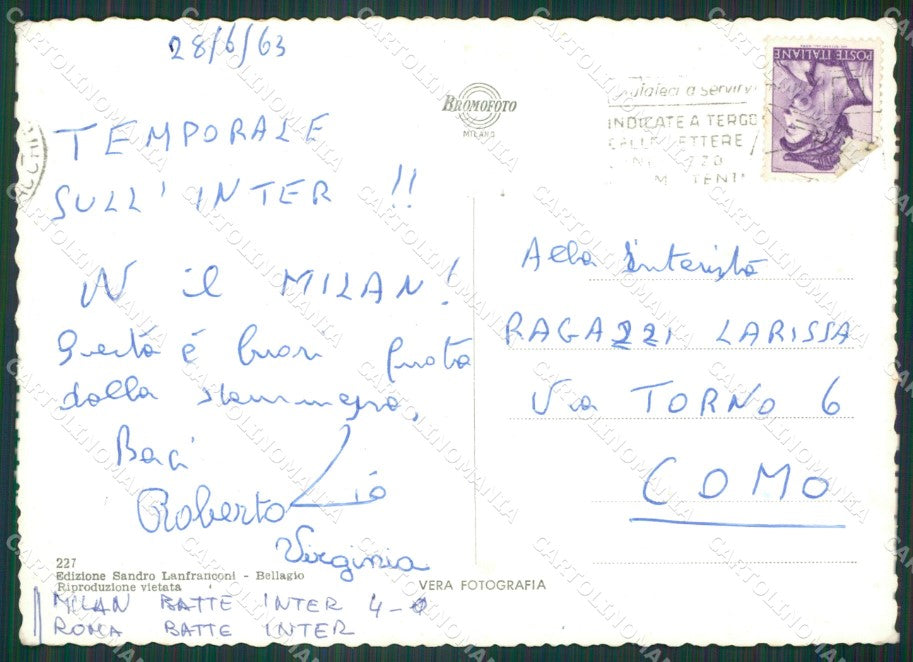 28/6/63
TEMPORALE
SULL'INTER !!
W il MILAN!
Questa è buon
dalla
Baci
Roberto
Virginia
227
Edizione Sandro Lanfranconi - Bellagio
Riproduzione vietata
MILAN BATTE INTER 4-0
ROMA BATTE INTER
VERA FOTOGRAFIA
BROMOFOTO
MILANO
INDICATE A TERGO
DELLE LETTERE
POSTE ITALIANE
Alla interista
RAGAZZI LARISSA
Via TORNO 6
COMO
CARTOLINOMANIA